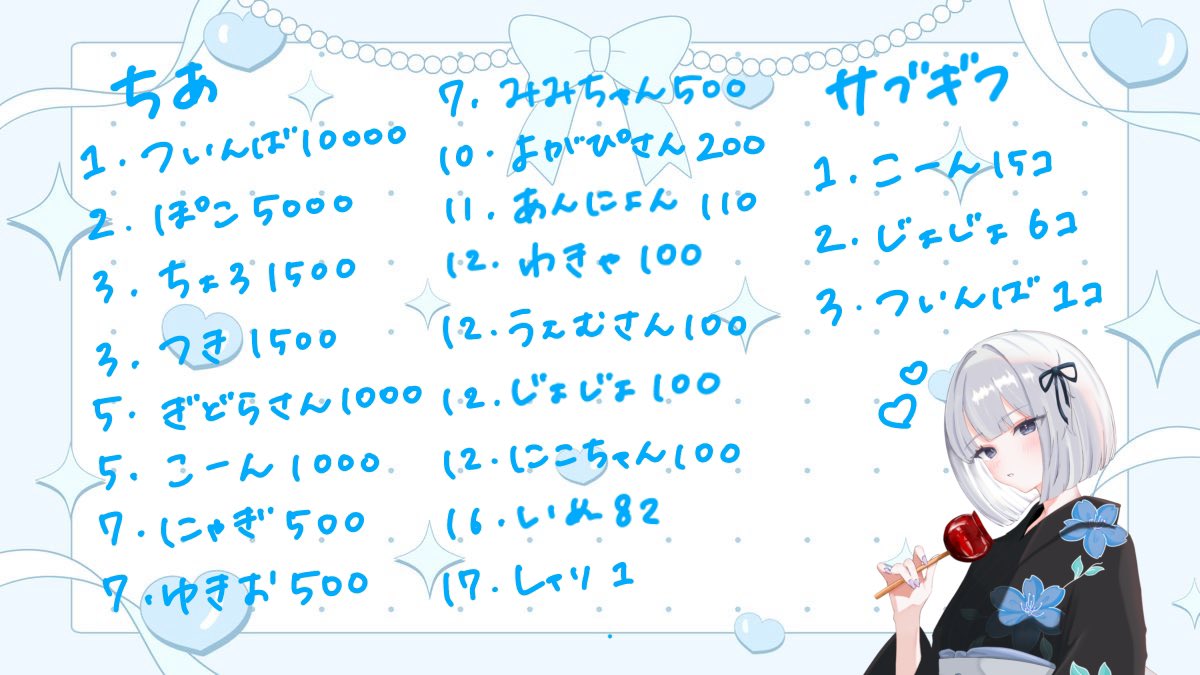 ちあ
1.ついんば10000
2.ぽこ5000
3.ちょろ1500
3.つき1500
5.ぎどらさん1000
5.こーん1000
7.にゃぎ500
7.ゆきお500
7.みみちゃん500
10.よがぴさん200
11.あんにょん110
12.わきゃ100
12.うぇむさん100
12.じょじょ100
12.にこちゃん100
16.いぬ82
17.しゃり1
サブギフ
1.こーん15コ
2.じょじょ6コ
3.ついんば1コ